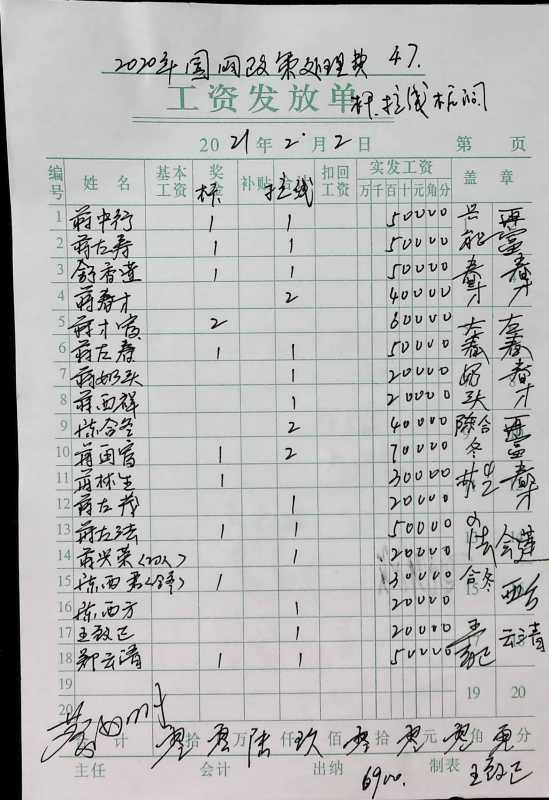 2020年国网政策处理费 47.
工资发放单 杆、拉线柜间
2021年2月2日 第 页
编号 姓名 基本工资 奖金 杆 补贴 拉线 扣回工资 实发工资 万千百十元角分 盖章
1 蒋中行 1 1 50000
2 蒋左寿 1 1 50000
3 舒香莲 1 1 50000
4 蒋春才 2 40000
5 蒋才富 2 60000
6 蒋左春 1 1 50000 左春 左春
7 蒋奶头 1 20000 奶头
8 蒋西祥 1 20000
9 陈合冬 2 40000 陈合冬
10 蒋西富 1 2 70000
11 蒋林生 1 30000
12 蒋左茂 1 20000
13 蒋左法 1 1 50000
14 蒋兴荣 1 20000
15 陈西 1 30000 合冬
16 陈西方 1 20000
17 王致已 1 20000 王致已
18 郑云清 1 1 50000 云清
19 19 20
20
计 零拾零万陆仟玖佰零拾零元零角零分
主任 会计 出纳 6900. 制表 王致已